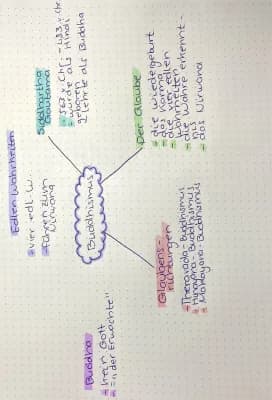 Buddhismus
Siddhartha
Gautama
- 563 v. Chr. - 483 v. Chr
- wurde als Hindi
geboren
lehrte als Buddha
Der Glaube
- die Wiedergeburt
- das Karma
- die vier edlen
Wahrheiten
- die Wahre erkennt-
nis
- das Nirwana
Glaubens-
richtungen
- Theravada-Buddhismus
- Hinayana-Buddhismus
- Mahayana-Buddhismus
Buddha
- kein Gott
- = "der Erwachte"
Edlen Wahrheiten
- vier edl. W.
- führen zum
Nirwana